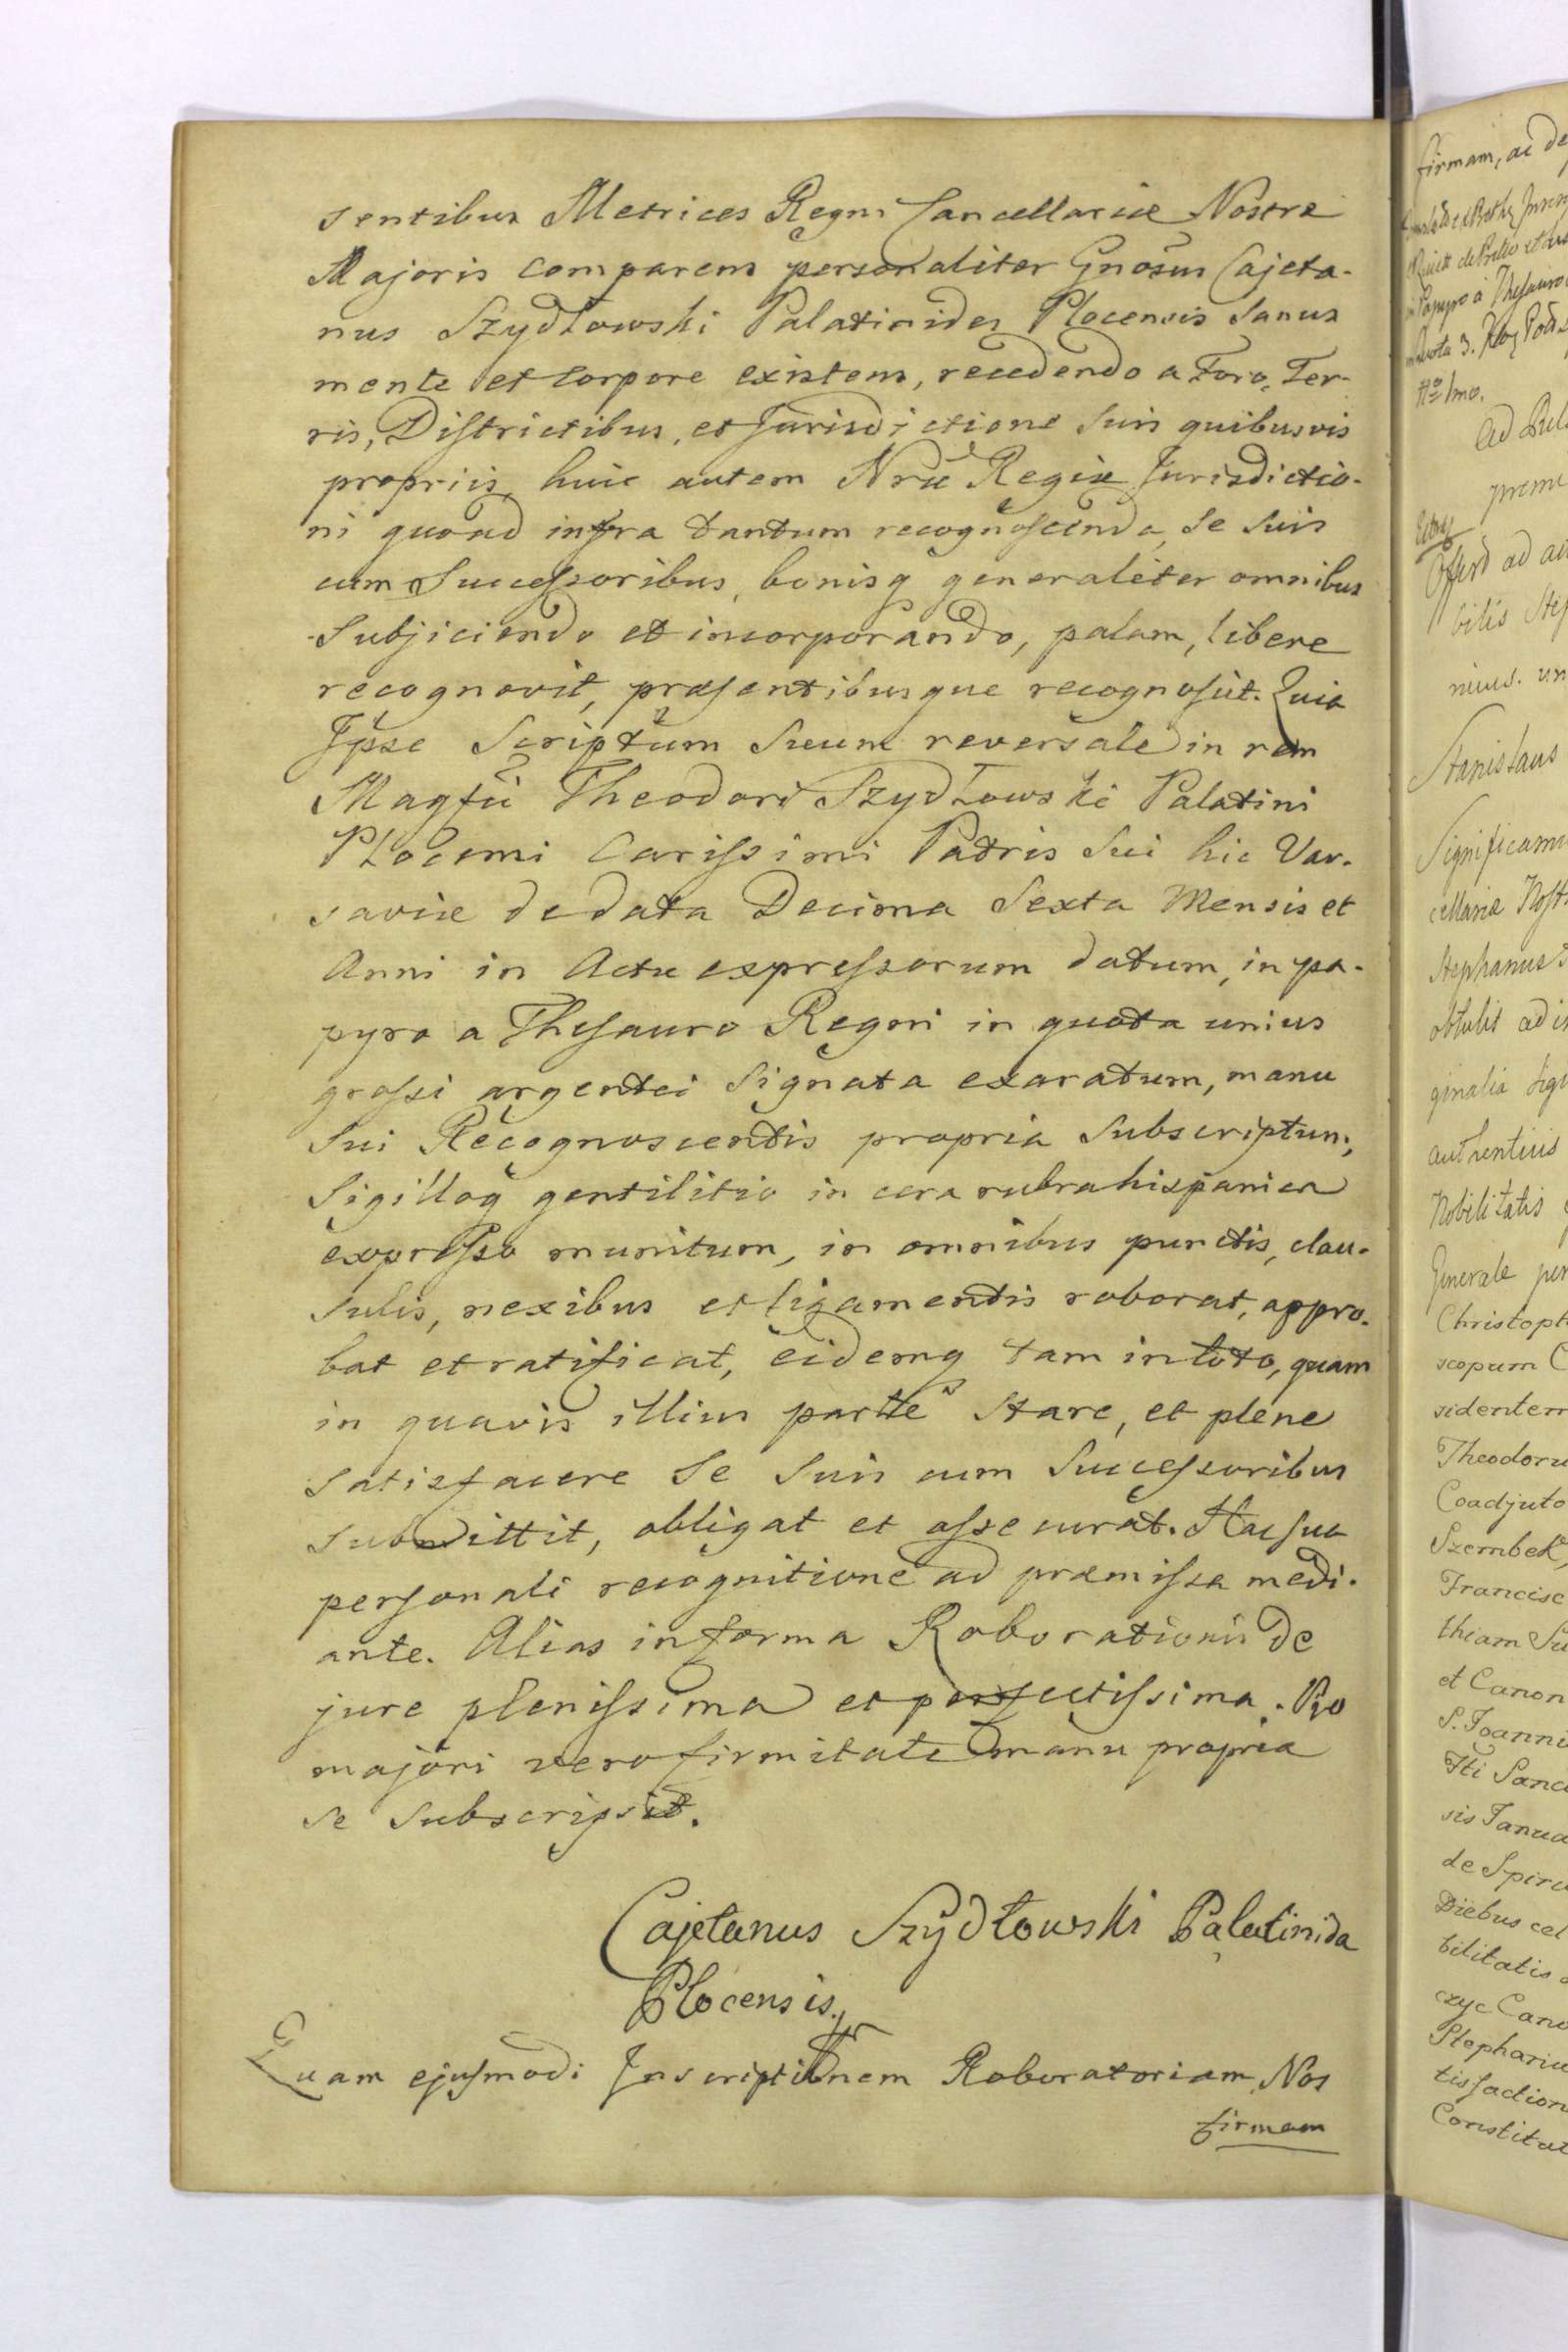 sentibus Metrices Regni Cancellariæ Nostræ
Majoris comparens personaliter Gnosus Cajeta-
nus Szydłowski Palatinides Plocensis Sanus
mente et Corpore existens, recedendo a Foro, Ter-
ris, Districtibus, et Jurisdictione Suis quibusvis
propriis, huic autem Nræ Regiæ Jurisdictio-
ni quoad infra tantum recognoscenda, Se Suis
cum Successoribus, bonisq generaliter omnibus
Subjiciendo et incorporando, palam, libere
recognovit, præsentibusque recognoscit. Quia
Ipse Scriptum Suum reversale in rem
Magfci Theodori Szydłowski Palatini
Płocensi Carissimi Patris Sui hic Var-
saviæ de data Decima Sexta Mensis et
Anni in Actu expressorum datum, in pa-
pyro a Thesauro Regni in quota unius
grossi argentei Signata exaratum, manu
Sui Recognoscentis propria Subscriptum,
Sigilloq gentilitio in cera rubra hispanica
expresso munitum, in omnibus punctis, clau-
sulis, nexibus et ligamentis roborat, appro-
bat et ratificat, eidemq tam in toto, quam
in quavis illius parte Stare, et plene
Satisfacere Se Suis cum Successoribus
submittit, obligat et assecurat. Hac sua
personali recognitione ad præmissa medi-
ante. Alias in forma Roborationis de
jure plenissima et perfectissima. Pro
majori vero firmitate manu propria
se Subscripsit.
Cajetanus Szydłowski Palatinida
Plocensis.
Quam ejusmodi Inscriptionem Roboratoriam, Nos
firmam
firmam, ac de
in Papyro a Thesauro
Quota 3.
Ad
Offert ad
bilis
nicus. un
Stanislaus
Significamu
cellariæ Nost
Stephanus
obtulit ad i
ginalia Sig
authenticis
Nobilitatis
Generale per
Christoph
scopum C
sidentem
Theodoru
Coadjuto
Szembek,
Francisc
thiam Su
et Canon
S. Joanni
Sanc
sis Janua
de Spiru
Diebus cel
bilitatis
czyc Cano
Stephanu
tisfaction
Constitut